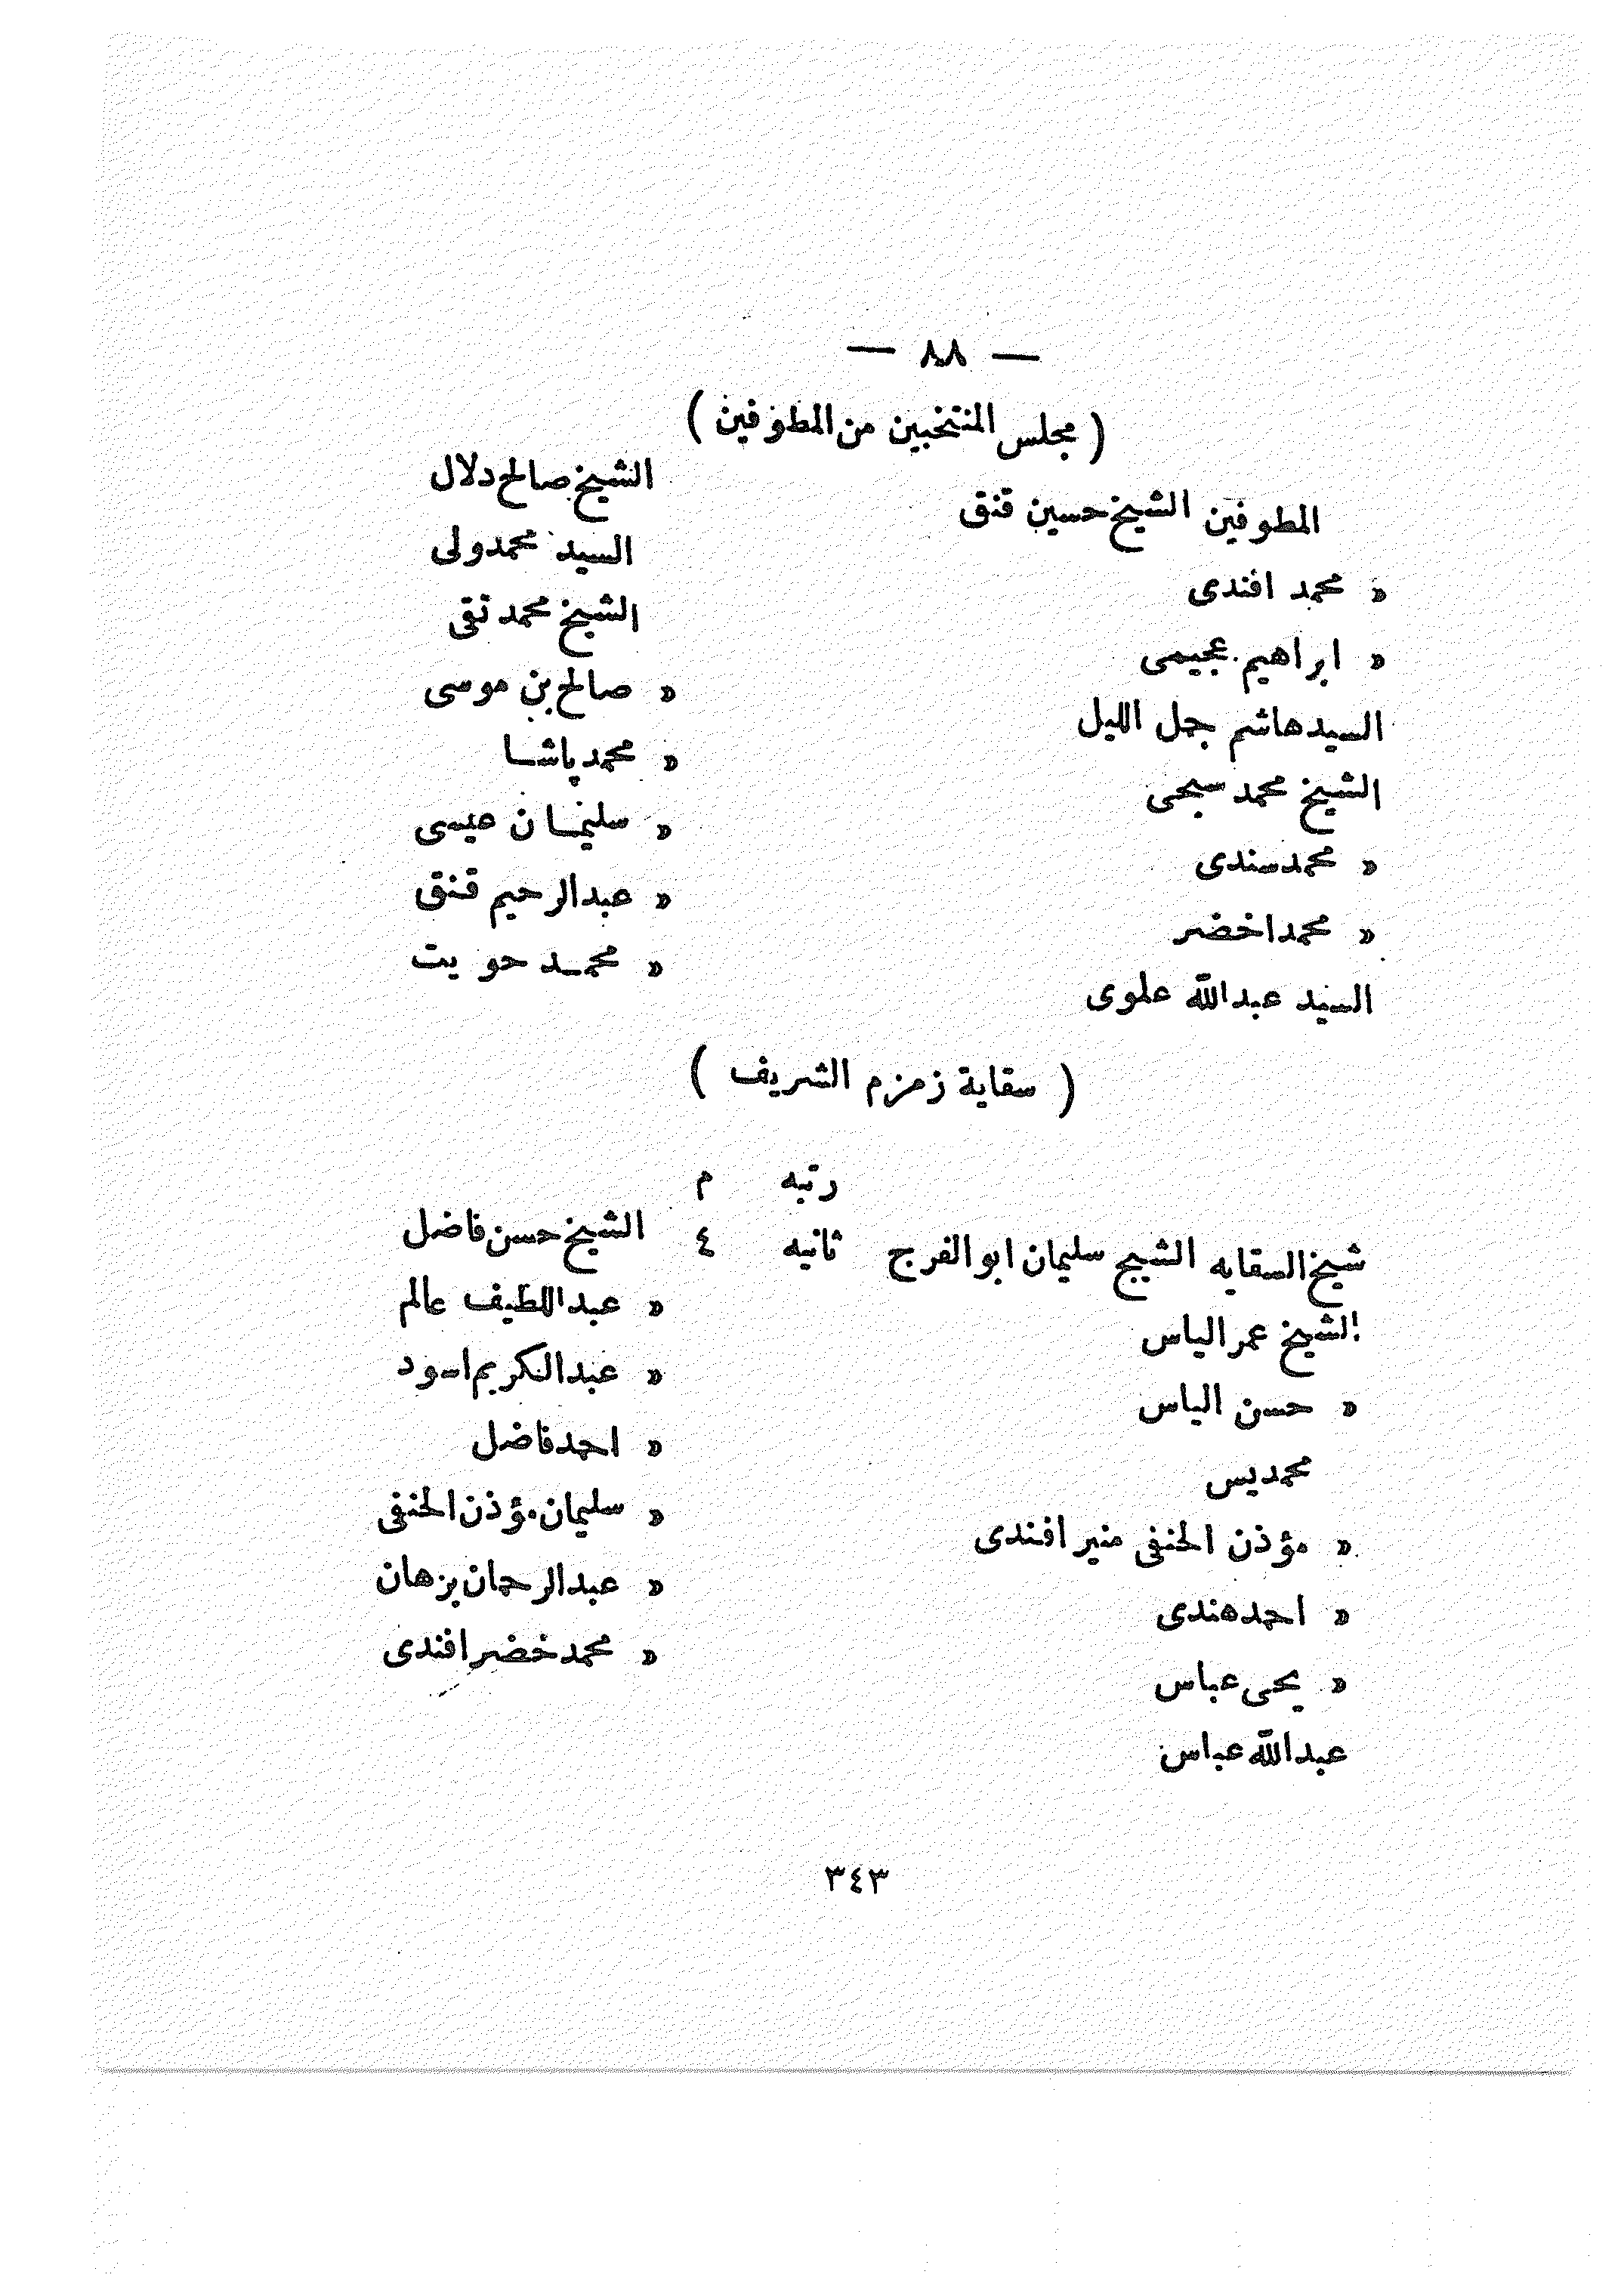 — ٨٨ —
( مجلس المنتخبين من المطوفين )
المطوفين الشيخ حسين قنق
« محمد افندى
« ابراهيم عجيمى
السيد هاشم جمل الليل
الشيخ محمد سبحى
« محمد سندى
« محمد اخضر
السيد عبدالله علوى
الشيخ صالح دلال
السيد محمد ولى
الشيخ محمد تقى
« صالح بن موسى
« محمد پاشا
« سليمان عيسى
« عبدالرحيم قنق
« محمد حويت
( سقاية زمزم الشريف )
رتبه م
شيخ السقايه الشيخ سليمان ابوالفرج ثانيه ٤
الشيخ عمر الياس
« حسن الياس
محمد يس
« مؤذن الحنفى منير افندى
« احمد هندى
« يحى عباس
عبدالله عباس
الشيخ حسن فاضل
« عبداللطيف عالم
« عبدالكريم اسود
« احمد فاضل
« سليمان مؤذن الحنفى
« عبدالرحمان بزهان
« محمد خضر افندى
٣٤٣